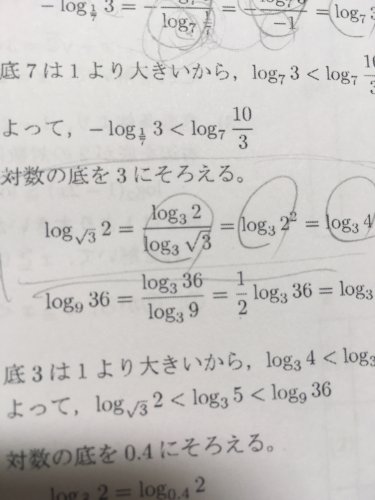 -log_{1/7} 3 = - / log_7 1/7 = / -1 = log_7 3
底 7 は 1 より大きいから, log_7 3 < log_7 10/3
よって, -log_{1/7} 3 < log_7 10/3
対数の底を 3 にそろえる。
log_{√3} 2 = log_3 2 / log_3 √3 = log_3 2^2 = log_3 4
log_9 36 = log_3 36 / log_3 9 = 1/2 log_3 36 = log_3
底 3 は 1 より大きいから, log_3 4 < log_3
よって, log_{√3} 2 < log_3 5 < log_9 36
対数の底を 0.4 にそろえる。
2 = log_{0.4} 2